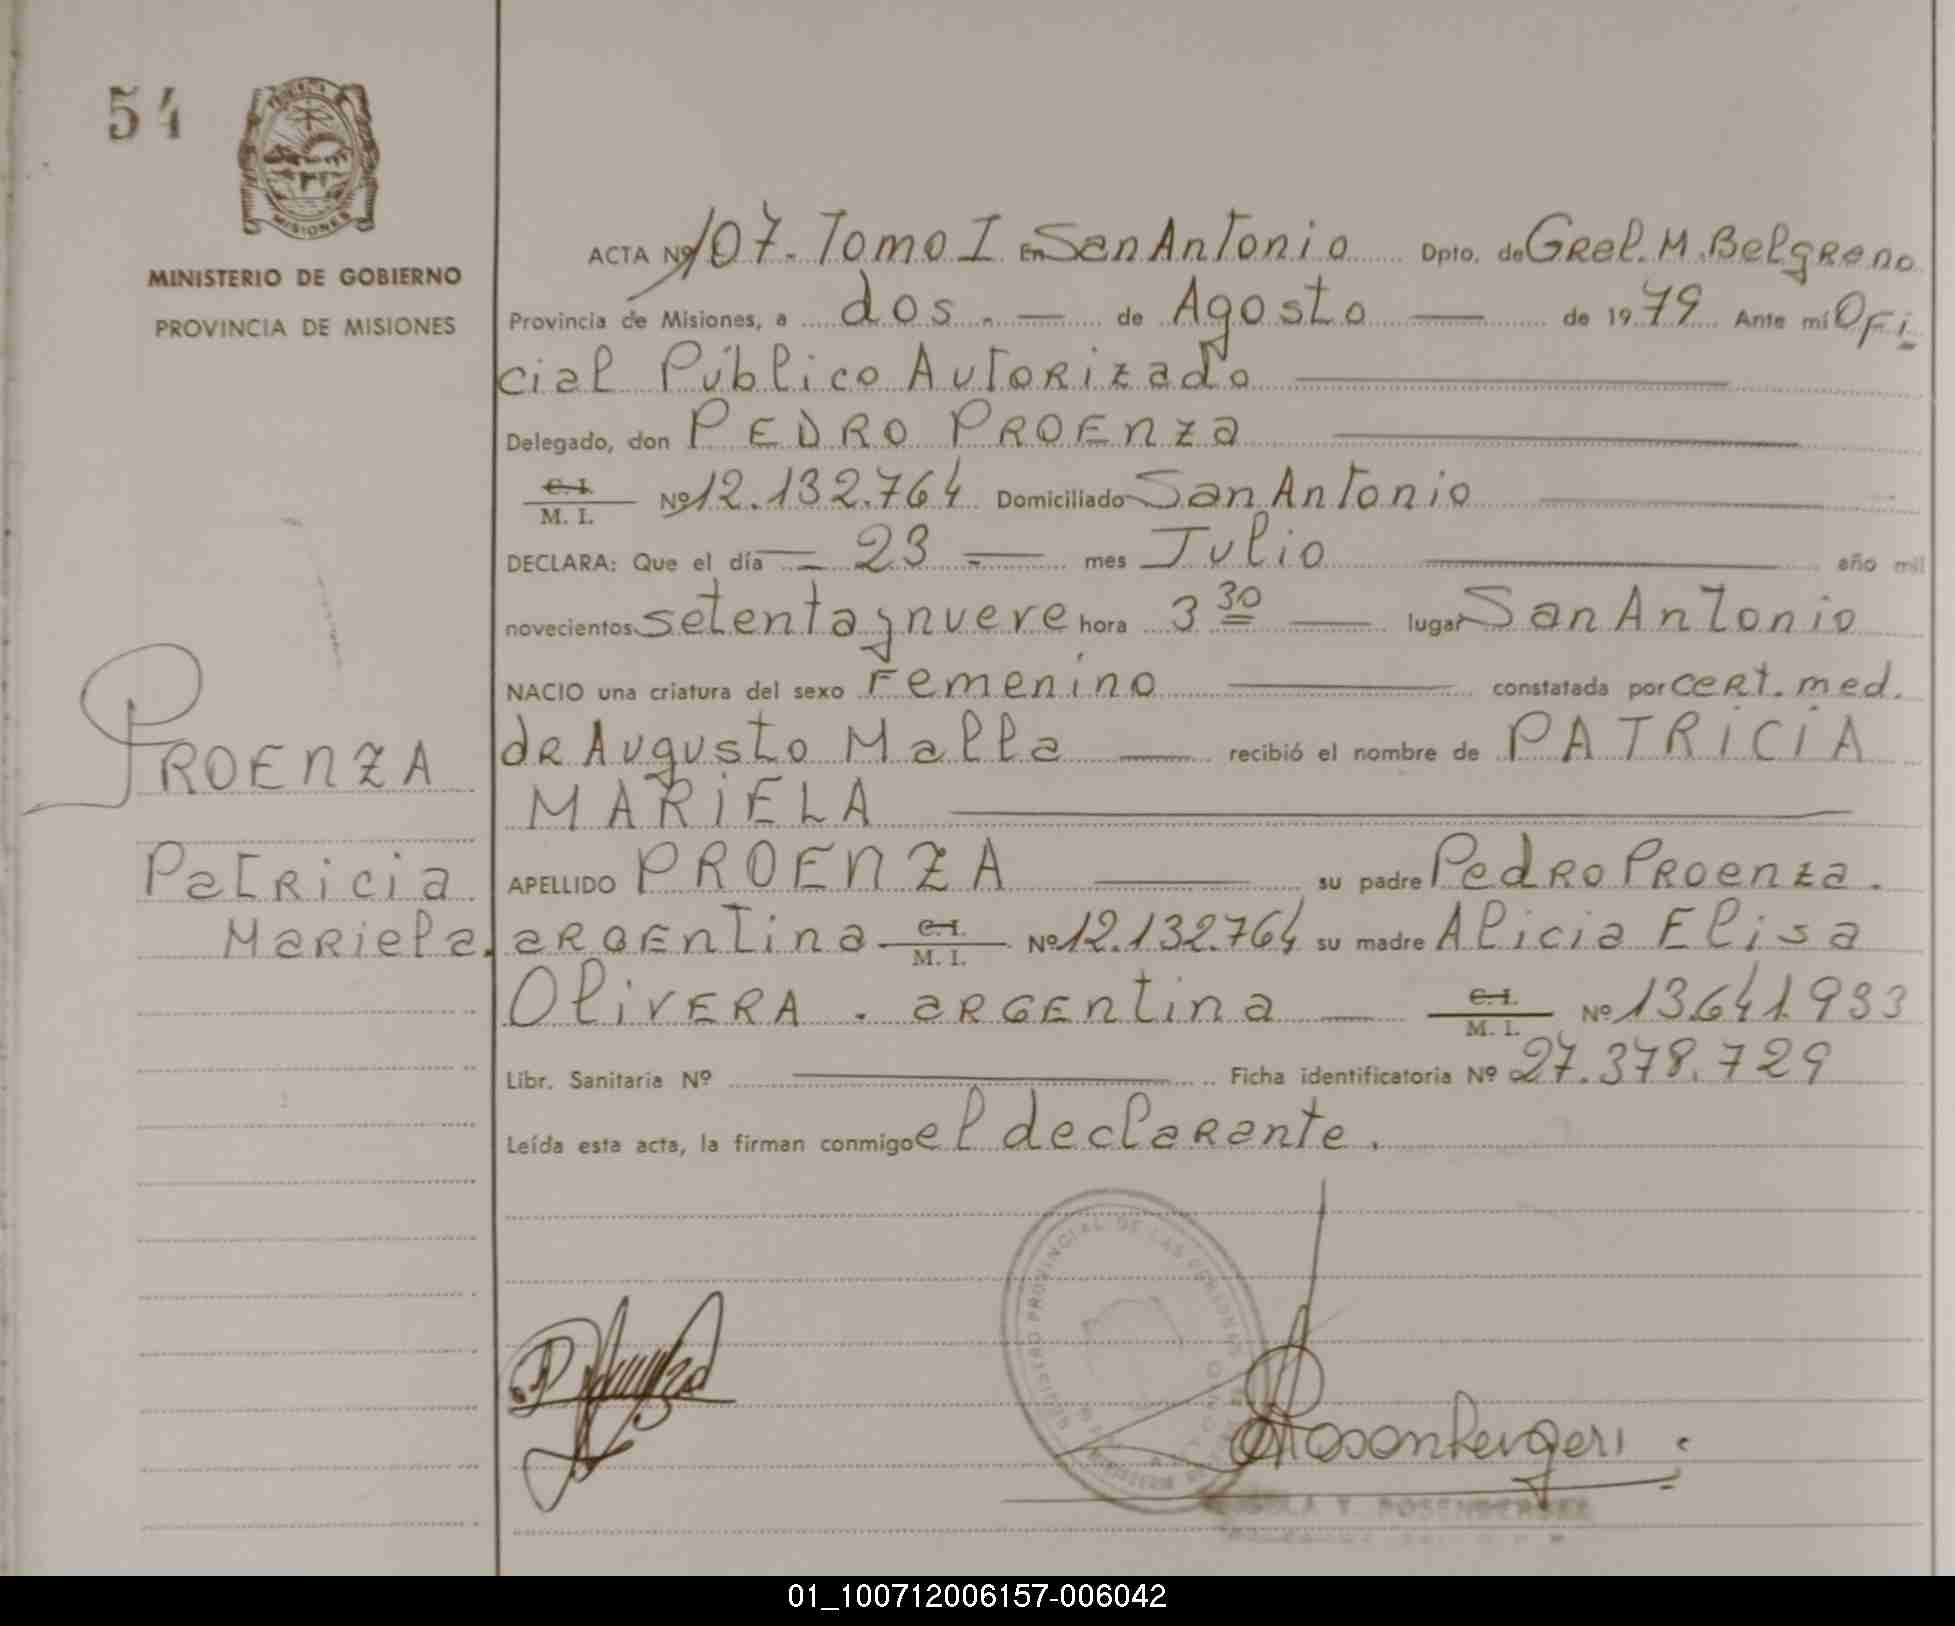 54
MISIONES
MINISTERIO DE GOBIERNO
PROVINCIA DE MISIONES
PROENZA
Patricia
Mariela.
ACTA Nº 107. Tomo I En San Antonio Dpto. de Gral. M. Belgrano
Provincia de Misiones, a dos. — de Agosto — de 1979 Ante mí Ofi
cial Público Autorizado
Delegado, don PEDRO PROENZA
C. I. / M. I. Nº 12.132.764 Domiciliado San Antonio
DECLARA: Que el día = 23 = mes Julio año mil
novecientos setenta y nueve hora 3 30 — lugar San Antonio
NACIO una criatura del sexo Femenino — constatada por cert. med.
de Augusto Malla — recibió el nombre de PATRICIA
MARIELA
APELLIDO PROENZA — su padre Pedro Proenza.
argentina C. I. / M. I. Nº 12.132.764 su madre Alicia Elisa
OLIVERA. argentina — C. I. / M. I. Nº 13.641.933
Libr. Sanitaria Nº — Ficha identificatoria Nº 27.378.729
Leída esta acta, la firman conmigo el declarante.
REGISTRO PROVINCIAL DE LAS PERSONAS
Y. ROSENBERGER
01_100712006157-006042